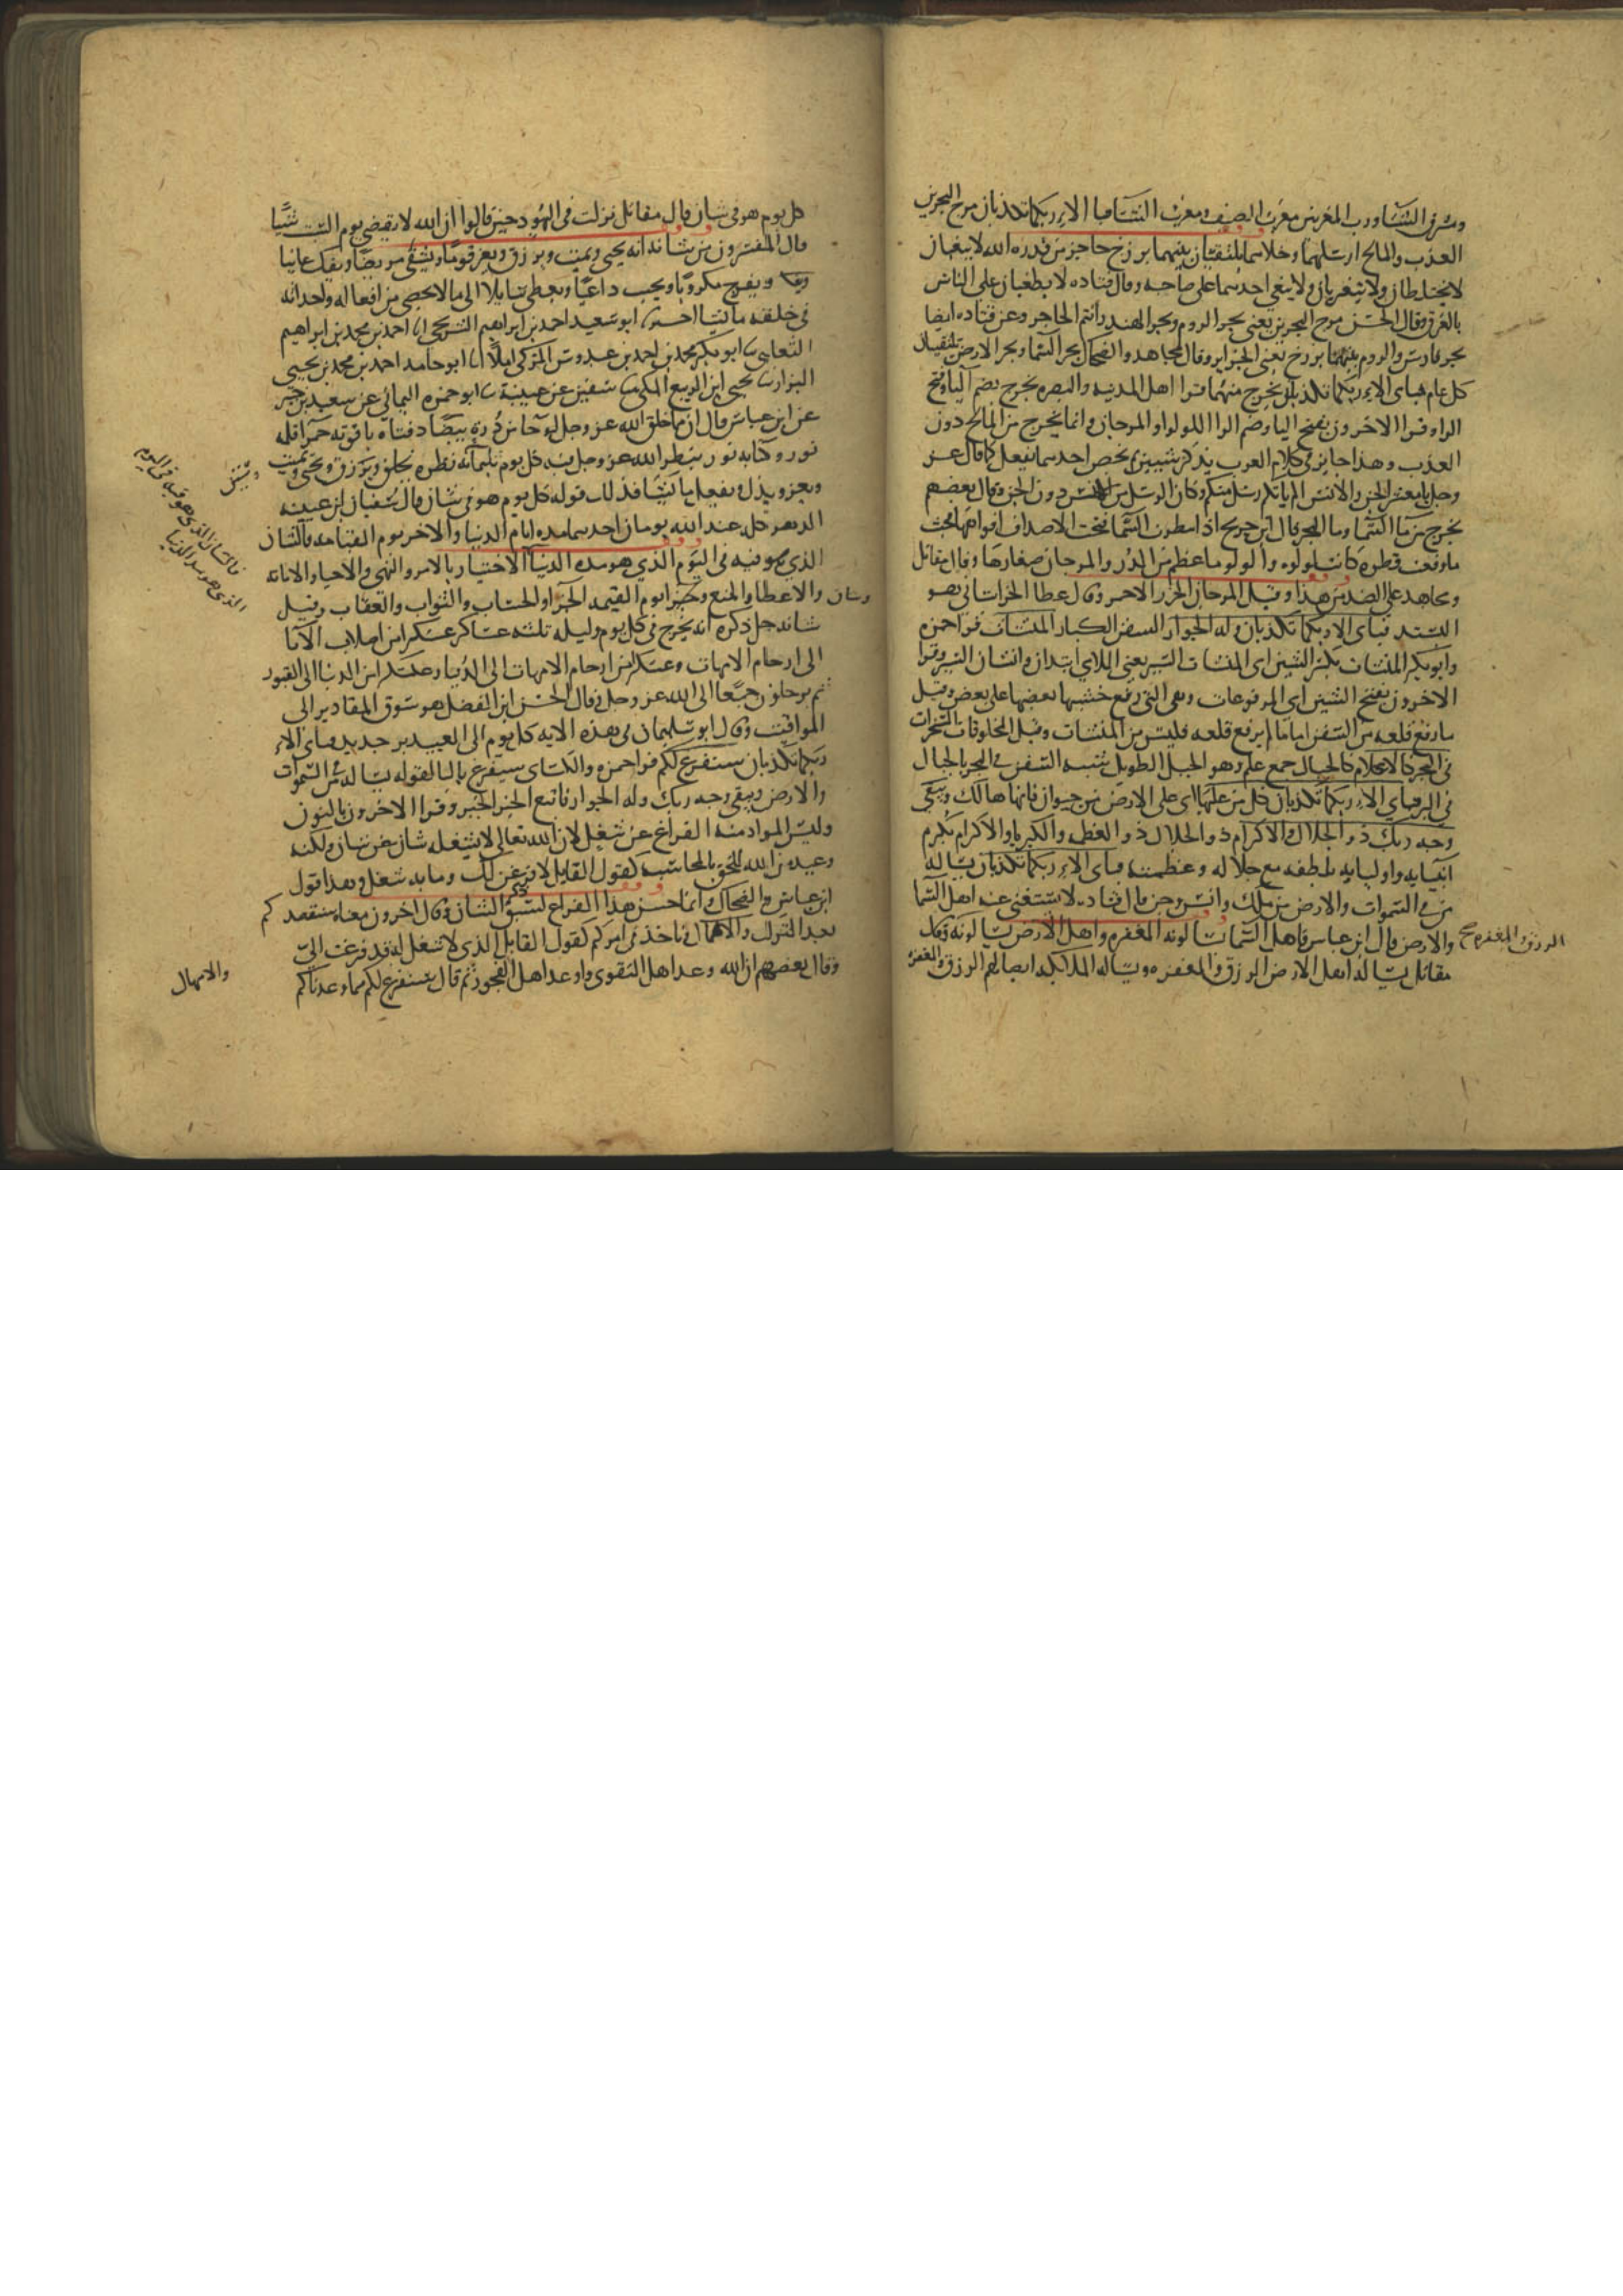 ومشرق الشتا ورب المغربين مغرب الصيف ومغرب الشتا فباي الاء ربكما تكذبان مرج البحرين
العذب والمالح ارسلهما وخلاهما يلتقيان بينهما برزخ حاجز من قدرة الله لا يبغيان
لا يختلطان ولا يتغيران ولا يبغي احدهما على صاحبه وقال قتاده لا يطغيان على الناس
بالغرق وقال الحسن مرج البحرين يعني بحر الروم وبحر الهند وانتم الحاجز وعن قتاده ايضا
بحر فارس والروم بينهما برزخ يعني الجزاير وقال مجاهد والضحاك بحر السما وبحر الارض يلتقيان
كل عام فباي الاء ربكما تكذبان يخرج منهما قرا اهل المدينه والبصره يخرج بضم اليا وفتح
الرا وقرا الاخرون بفتح اليا وضم الرا اللولو والمرجان وانما يخرج من المالح دون
العذب وهذا جايز في كلام العرب يذكر شيين ثم يخص احدهما بفعل كما قال عز
وجل يا معشر الجن والانس الم ياتكم رسل منكم وكان الرسل من الانس دون الجن وقال بعضهم
يخرج من ما السما وما البحر قال ابن جريج اذا امطرت السما فتحت الاصداف افواهها فحيث
ما وقعت قطرة كانت لولوه واللولو ما عظم من الدر والمرجان صغارها وقال مقاتل
ومجاهد على الضد من هذا وقيل المرجان الخرز الاحمر وقال عطا الخراساني هو
البسد فباي الاء ربكما تكذبان وله الجوار السفن الكبار المنشات قرا حمزه
وابو بكر المنشات بكسر الشين اي المنشات السير يعني اللاي ابتدان وانشان السير وقرا
الاخرون بفتح الشين اي المرفوعات وهي التي رفع خشبها بعضها على بعض وقيل
ما رفع قلعه من السفن اما ما لم يرفع قلعه فليس من المنشات وقيل المخلوقات المسخرات
في البحر كالاعلام كالجبال جمع علم وهو الجبل الطويل شبه السفن في البحر بالجبال
في البر فباي الاء ربكما تكذبان كل من عليها اي على الارض من حيوان فانها هالك ويبقى
وجه ربك ذو الجلال والاكرام ذو الجلال ذو العظمه والكبريا والاكرام مكرم
انبيايه واوليايه بلطفه مع جلاله وعظمته فباي الاء ربكما تكذبان يساله
من في السموات والارض من ملك وانس وجن قال قتاده لا يستغني عنه اهل السما
والارض قال ابن عباس فاهل السما يسالونه المغفره واهل الارض يسالونه وقال
الرزق والمغفره صح
مقاتل يساله اهل الارض الرزق والمغفره ويساله الملايكه ايضا لهم الرزق والمغفره
كل يوم هو في شان قال مقاتل نزلت في اليهود حين قالوا ان الله لا يقضي يوم السبت شيا
قال المفسرون من شانه انه يحيي ويميت ويرزق ويعز قوما ويشفي مريضا ويفك عانيا
ويفرج مكروبا ويجيب داعيا ويعطي سايلا الى ما لا يحصى من افعاله واحداثه
في خلقه ما يشا ابو سعيد احمد بن ابراهيم الشريحي انا احمد بن محمد بن ابراهيم
الثعلبي ابو بكر محمد بن احمد بن عبدوس المزكي املا انا ابو حامد احمد بن محمد بن يحيى
البزاز يحيى ابن الربيع المكي سفين عن عيينة ابو حمزه اليماني عن سعيد بن جبير
عن ابن عباس قال ان مما خلق الله عز وجل لوحا من دره بيضا دفتاه ياقوته حمرا قلمه
نور وكتابه نور ينظر الله عز وجل فيه كل يوم ثلثمائه نظره يخلق ويرزق ويحيي ويميت
ويعز ويذل ويفعل ما يشا فذلك قوله كل يوم هو في شان قال سفيان ابن عيينه
الدهر كله عند الله يومان احدهما مده ايام الدنيا والاخر يوم القيامه فالشان
الذي هو فيه في اليوم الذي هو مده الدنيا الاختيار بالامر والنهي والاحيا والاماته
وشان والاعطا والمنع وخبر يوم القيمه الجزا والحساب والثواب والعقاب وقيل
شانه جل ذكره انه يخرج في كل يوم وليله ثلثه عساكر عسكرا من اصلاب الابا
الى ارحام الامهات وعسكرا من ارحام الامهات الى الدنيا وعسكرا من الدنيا الى القبور
ثم يرحلون جميعا الى الله عز وجل وقال الحسن ابن الفضل هو سوق المقادير الى
المواقيت وقال ابو سليمان في هذه الايه كل يوم الى العبيد بر جديد فباي الاء
ربكما تكذبان سنفرغ لكم قرا حمزه والكساي سيفرغ باليا لقوله يساله من في السموات
والارض ويبقى وجه ربك وله الجوار فاتبع الخبر الخبر وقرا الاخرون بالنون
وليس المراد منه الفراغ عن شغل لان الله تعالى لا يشغله شان عن شان ولكنه
وعيد من الله للخلق بالمحاسبه كقول القايل لافرغن لك وما به شغل وهذا قول
ابن عباس والضحاك وانما حسن هذا الفراغ لسبق ذكر الشان وقال اخرون معناه سنقصدكم
بعد الترك والاهمال وناخذ في امركم كقول القايل الذي لا شغل له قد فرغت الي
وقال بعضهم ان الله وعد اهل التقوى واوعد اهل الفجور ثم قال سنفرغ لكم مما وعدناكم
فالشان الذي هو فيه في اليوم
الذي هو مده الدنيا
والامهال